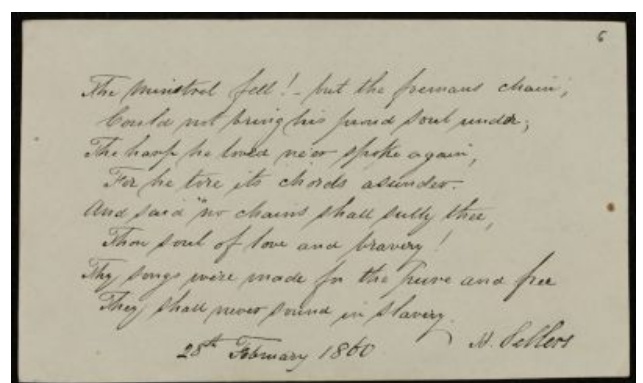 6
The Minstrel fell! - but the foemans chain,
Could not bring his proud soul under;
The harp he loved ne'er spoke again,
For he tore its chords asunder.
And said "no chains shall sully thee,
Thou soul of love and bravery!
Thy songs were made for the pure and free
They shall never sound in slavery.
28th February 1860
Sellers